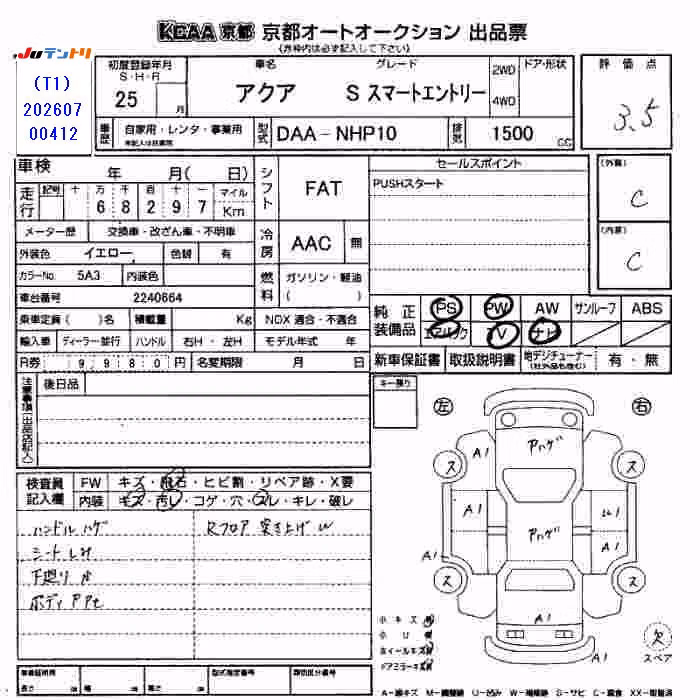 KCAA 京都 京都オートオークション 出品票
(赤枠内は必ず記入して下さい)
JUテントリ
(T1)
202607
00412
初度登録年月
S・H・R
25 月
車名 グレード
アクア S スマートエントリー
2WD
4WD
ドア・形状
評価点
3.5
車歴 自家用・レンタ・事業用
型式 DAA-NHP10
排気 1500 cc
車検 年 月( 日)
シフト FAT
セールスポイント
PUSHスタート
(外装)
C
(内装)
C
走行 記号 十 万 千 百 十 一 マイル
6 8 2 9 7 Km
メーター歴 交換車・改ざん車・不明車
冷房 AAC 無
外装色 イエロー 色替 有
カラーNo. 5A3 内装色
燃料 ガソリン・軽油
( )
車台番号 2240664
純正装備品 PS PW AW サンルーフ ABS
エアバック V ナビ
乗車定員( )名 積載量 Kg NOX 適合・不適合
輸入車 ディーラー・並行 ハンドル 右H・左H モデル年式 年
R券 9980円 名変期限 月 日
新車保証書 取扱説明書 地デジチューナー 有・無
注意事項(出品店記入)
後日品
キー預り
左 右
検査員記入欄
FW キズ・飛石・ヒビ割・リペア跡・X要
内装 キズ・汚レ・コゲ・穴・スレ・キレ・破レ
ハンドルハゲ
Rフロア 突き上げ W
シート
下廻り
ボディ
A1
アハゲ
ス ス
A1
アハゲ
A1
A1
ス ス
A1
小キズ
ホイールキズ
ドアミラーキズ
欠
スペア
車検証用
長さ cm 幅 cm 高さ cm
型式指定番号
類別区分番号